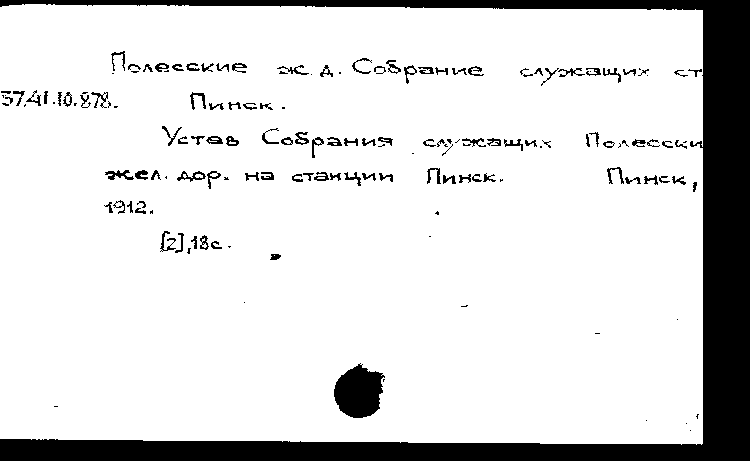 Полесские ж.д. Собрание служащих ст
37.41.10.878. Пинск.
Устав Собрания служащих Полесски
жел. дор. на станции Пинск. Пинск,
1912.
[2], 18 с.